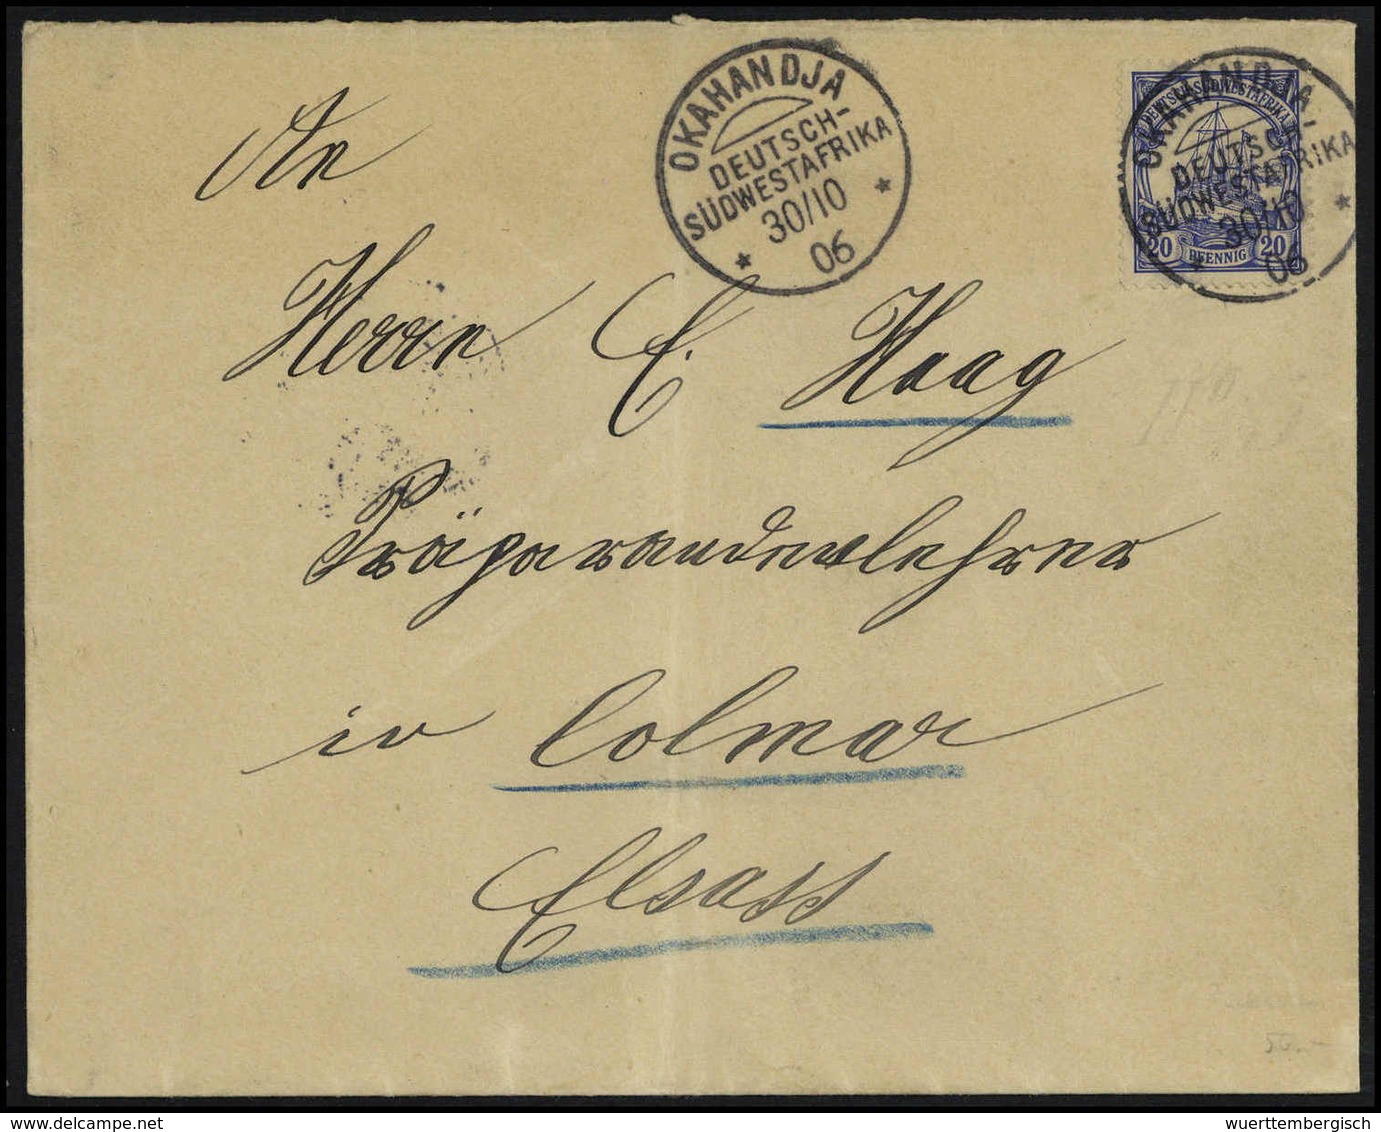 OKAHANDJA
DEUTSCH-
SÜDWESTAFRIKA
30/10
06
DEUTSCH-SÜDWESTAFRIKA
20 PFENNIG 20
OKAHANDJA
DEUTSCH-
SÜDWESTAFRIKA
30/10
06
An
Herrn E. Haag
Präparandenlehrer
in Colmar
Elsass
50.-
wuerttembergisch